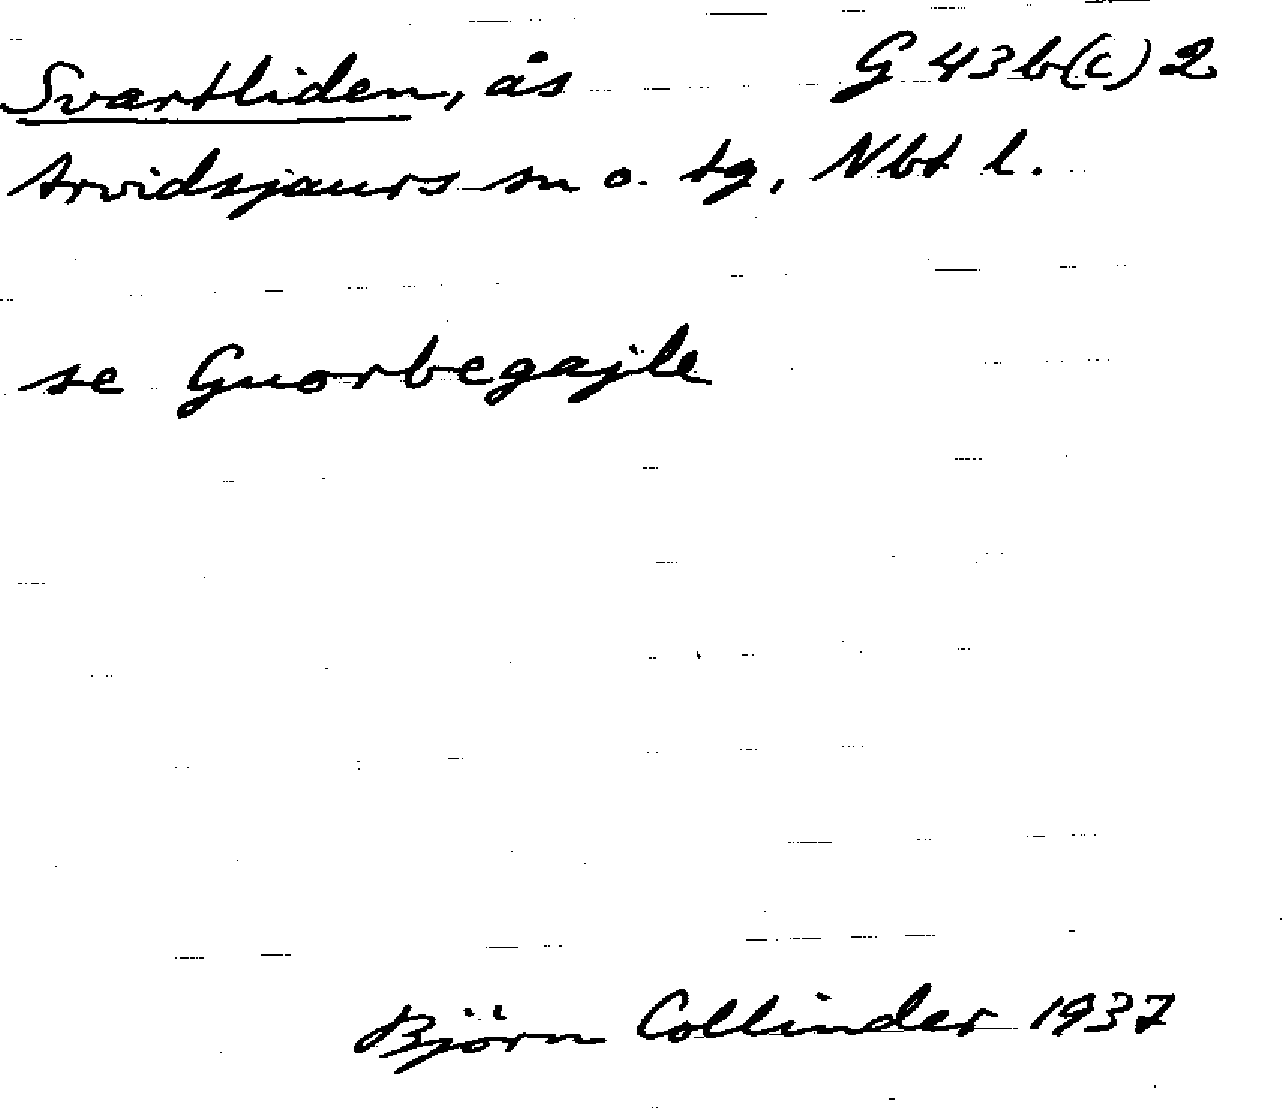 Svartliden, ås G 43 b(c) 2
Arvidsjaurs sn o. tg, Nbt l.
se Guorbegajle
Björn Collinder 1937